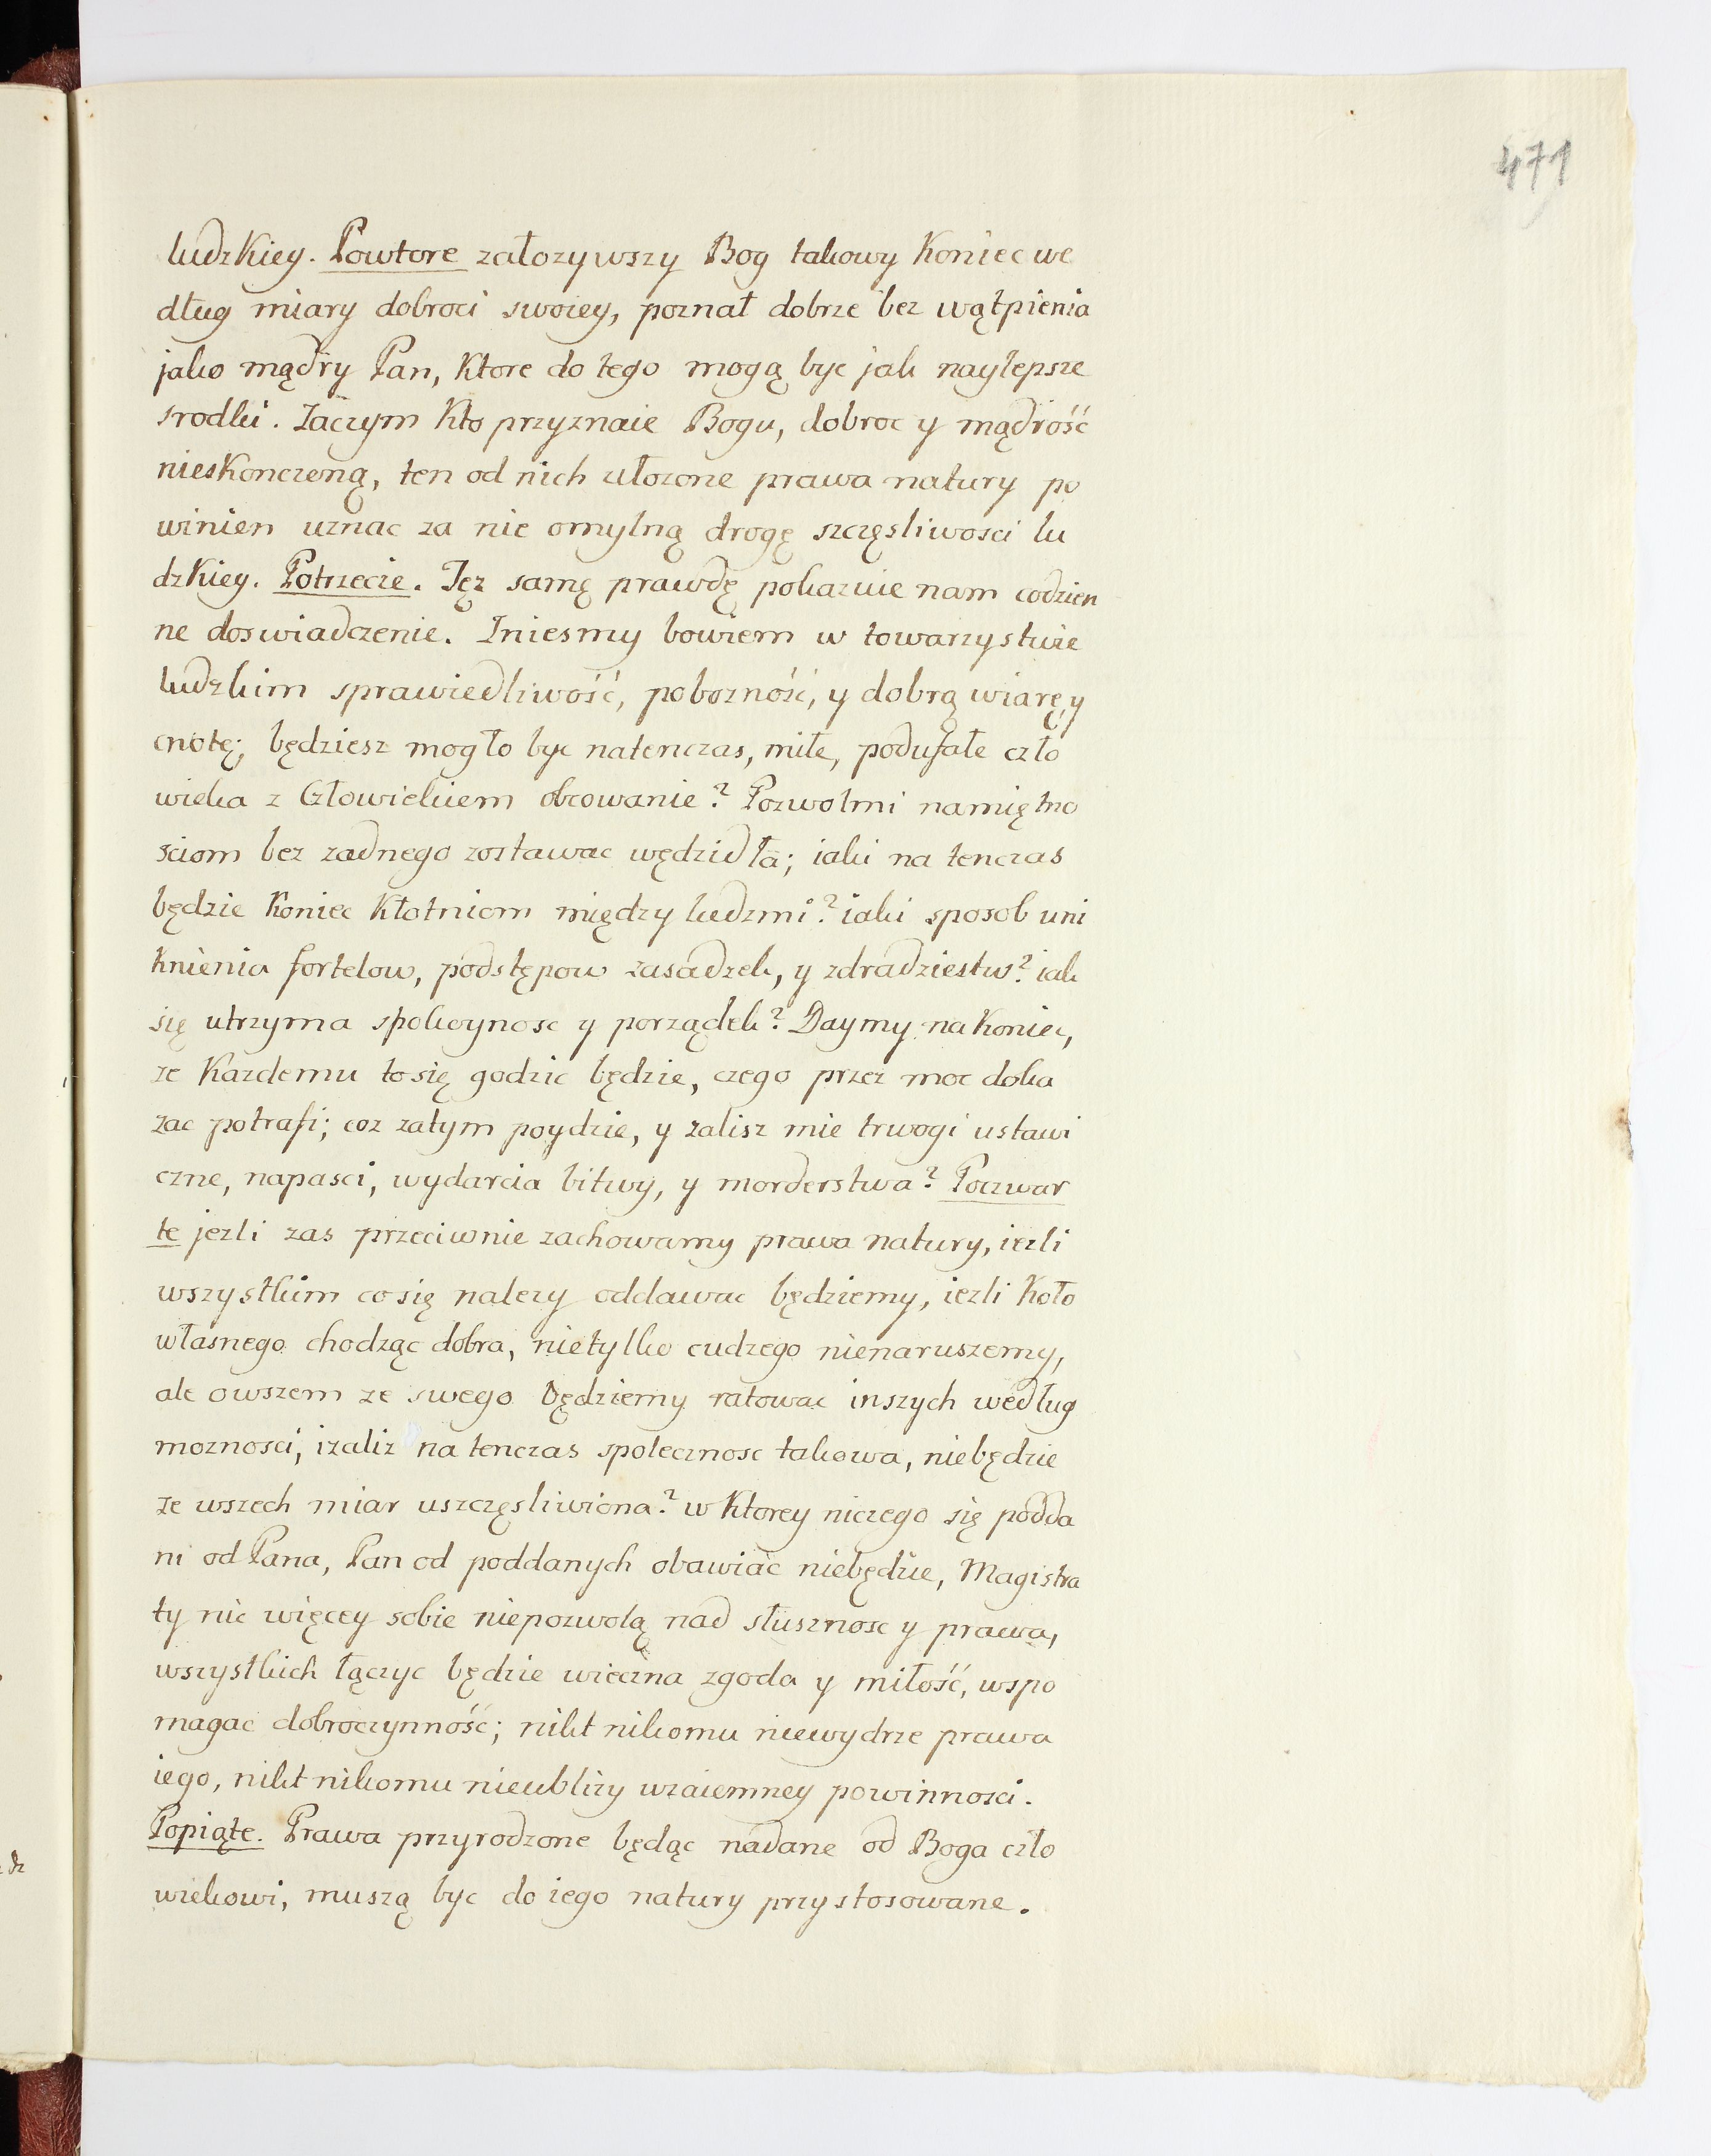 471
ludzkiey. Powtore założywszy Bog takowy koniec we
dług miary dobroci swoiey, poznał dobrze bez wątpienia
jako mądry Pan, ktore do tego mogą byc jak naylepsze
srodki. Zaczym kto przyznaie Bogu, dobroc y mądrość
nieskonczoną, ten od nich ułozone prawa natury po
winien uznac za nie omylną drogę szczęsliwosci lu
dzkiey. Potrzecie. Tęz samę prawdę pokazuie nam codzien
ne doswiadczenie. Zniesmy bowiem w towarzystwie
ludzkim sprawiedliwość, pobozność, y dobrą wiarę, y
cnotę; będziesz mogło byc natenczas, miłe, podufałe czło
wieka z Człowiekiem obcowanie? Pozwolmi namiętno
sciom bez zadnego zostawac wędzidła; iaki na tenczas
będzie koniec kłotniom między ludzmi? iaki sposob uni
knienia fortelow, podstępow zasadzek, y zdradziestw? iak
się utrzyma spokoynosc y porządek? Daymy na koniec,
ze kazdemu to się godzic będzie, czego przez moc doka
zac potrafi; coz zatym poydzie, y zalisz nie trwogi ustawi
czne, napasci, wydarcia bitwy, y morderstwa? Poczwar
te jezli zas przeciwnie zachowamy prawa natury, iezli
wszystkim co się nalezy oddawac będziemy, iezli koło
własnego chodząc dobra, nietylko cudzego nienaruszemy,
ale owszem ze swego będziemy ratowac inszych według
moznosci, izaliz na tenczas spolecznosc takowa, niebędzie
ze wszech miar uszczęsliwiona? w ktorey niczego się podda
ni od Pana, Pan od poddanych obawiać niebędzie, Magistra
ty nic więcey sobie niepozwolą nad słusznosc y prawa,
wszystkich łączyc będzie wieczna zgoda y miłość, wspo
magac dobroczynność; nikt nikomu niewydrze prawa
iego, nikt nikomu nieublizy wzaiemney powinnosci.
Popiąte. Prawa przyrodzone będąc nadane od Boga czło
wiekowi, muszą byc do iego natury przystosowane.